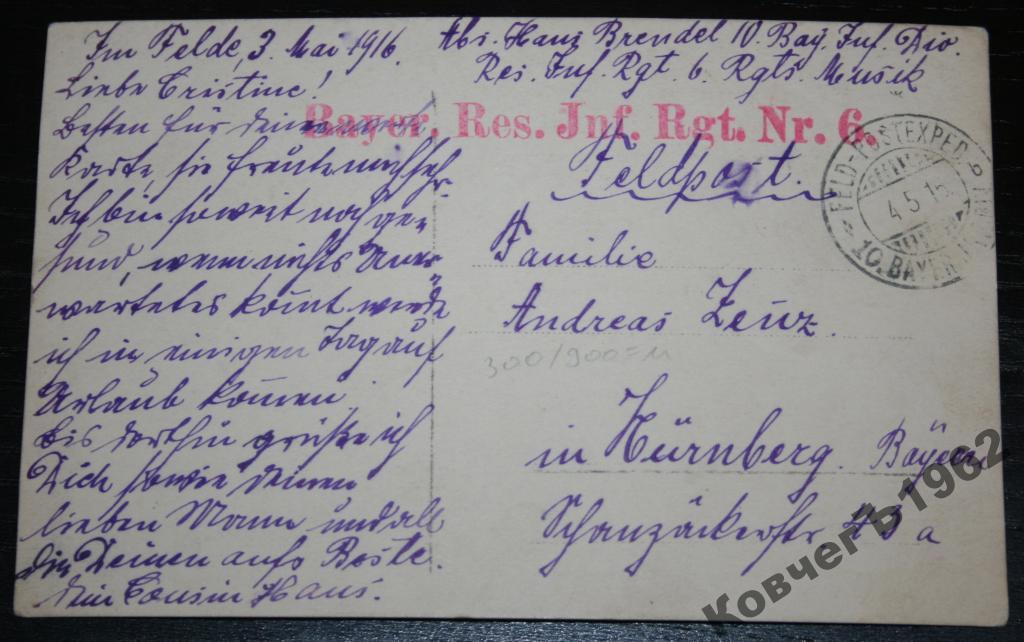 Im Felde, 3. Mai 1916.
Liebe Cristine!
Besten für deine
Karte, sie freute mich sehr.
Ich bin soweit noch ge-
sund, wenn nichts Uner-
wartetes kommt werde
ich in einigen Tag auf
Urlaub kommen
bis dorthin grüße ich
Dich sowie deinen
lieben Mann und all
die Deinen aufs Beste.
dein Cousin Hans.
Abs. Hans Brendel 10. Bay. Inf. Div.
Res. Inf. Rgt. 6. Rgts. Musik
Bayer. Res. Inf. Rgt. Nr. 6.
Feldpost.
FELD-POSTEXPED
4.5.16
10. BAYER.
Familie
Andreas Zenz.
300/900=
in Nürnberg. Bayern
Schanzäckerstr 43 a
КовчегЪ1962